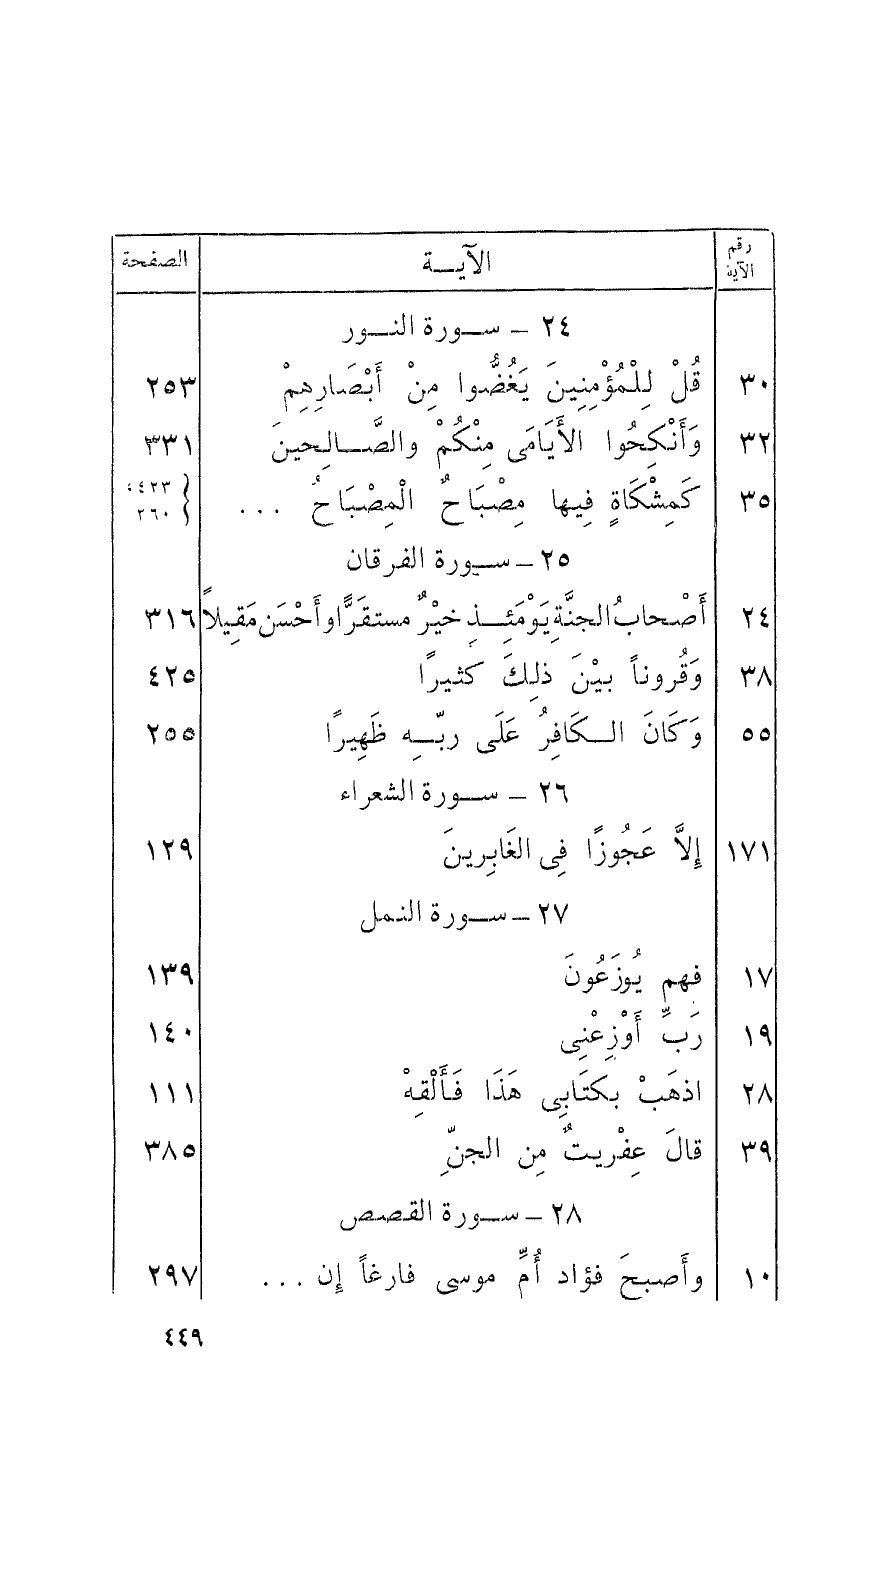 رقم الآية الآيــة الصفحة
٢٤ – ســورة النــور
٣٠ قُلْ لِلْمُؤْمِنِينَ يَغُضُّوا مِنْ أَبْصَارِهِمْ ٢٥٣
٣٢ وَأَنْكِحُوا الأَيَامَى مِنْكُمْ والصَّــالِحينَ ٣٣١
٣٥ كَمِشْكَاةٍ فِيها مِصْبَاحٌ الْمِصْبَاحُ ... { ٤٢٣، ٢٦٠
٢٥ – ســورة الفرقان
٢٤ أَصْحابُ الجنَّةِ يَوْمَئِــذٍ خيْرٌ مستقَرًّا وأَحْسَن مَقِيلاً ٣١٦
٣٨ وَقُروناً بيْنَ ذلِكَ كثيرًا ٤٢٥
٥٥ وَكَانَ الــكَافِرُ عَلَى ربِّــهِ ظَهِيرًا ٢٥٥
٢٦ – ســورة الشعراء
١٧١ إِلاَّ عَجُوزًا فِى الغَابِرِينَ ١٢٩
٢٧ – ســورة النمل
١٧ فهم يُوزَعُونَ ١٣٩
١٩ رَبِّ أَوْزِعْنِى ١٤٠
٢٨ اذهَبْ بكتَابِى هَذَا فَأَلْقِهْ ١١١
٣٩ قالَ عِفْريتٌ مِن الجنِّ ٣٨٥
٢٨ – ســورة القصص
١٠ وأَصبحَ فؤاد أُمِّ موسى فارغاً إن ... ٢٩٧
٤٤٩